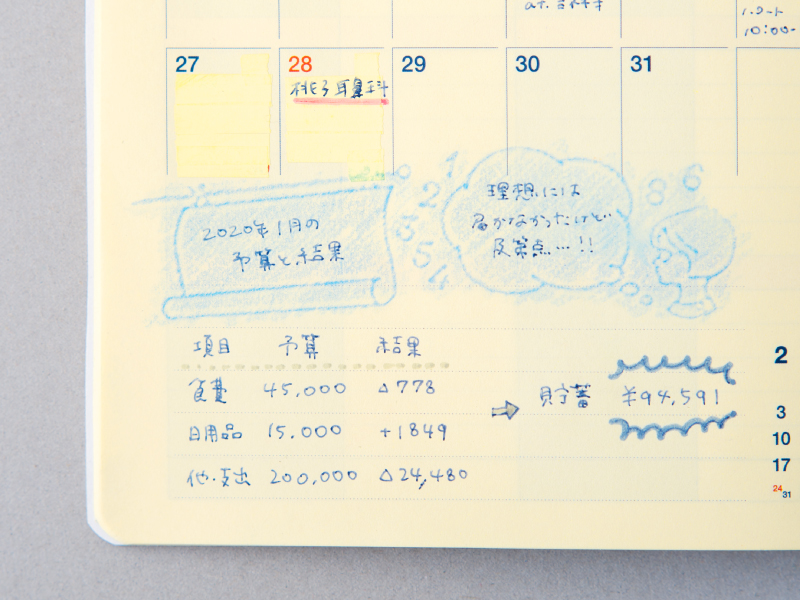 1.2-ト
10:00-
27
28
29
30
31
桃子耳鼻科
1
2
3
5
4
8
6
2020年1月の
予算と結果
理想には
届かなかったけど…
及第点…!!
項目 予算 結果
食費 45,000 △778
日用品 15,000 +1849
他・支出 200,000 △24,480
貯蓄 ¥94,591
2
3
10
17
24
31